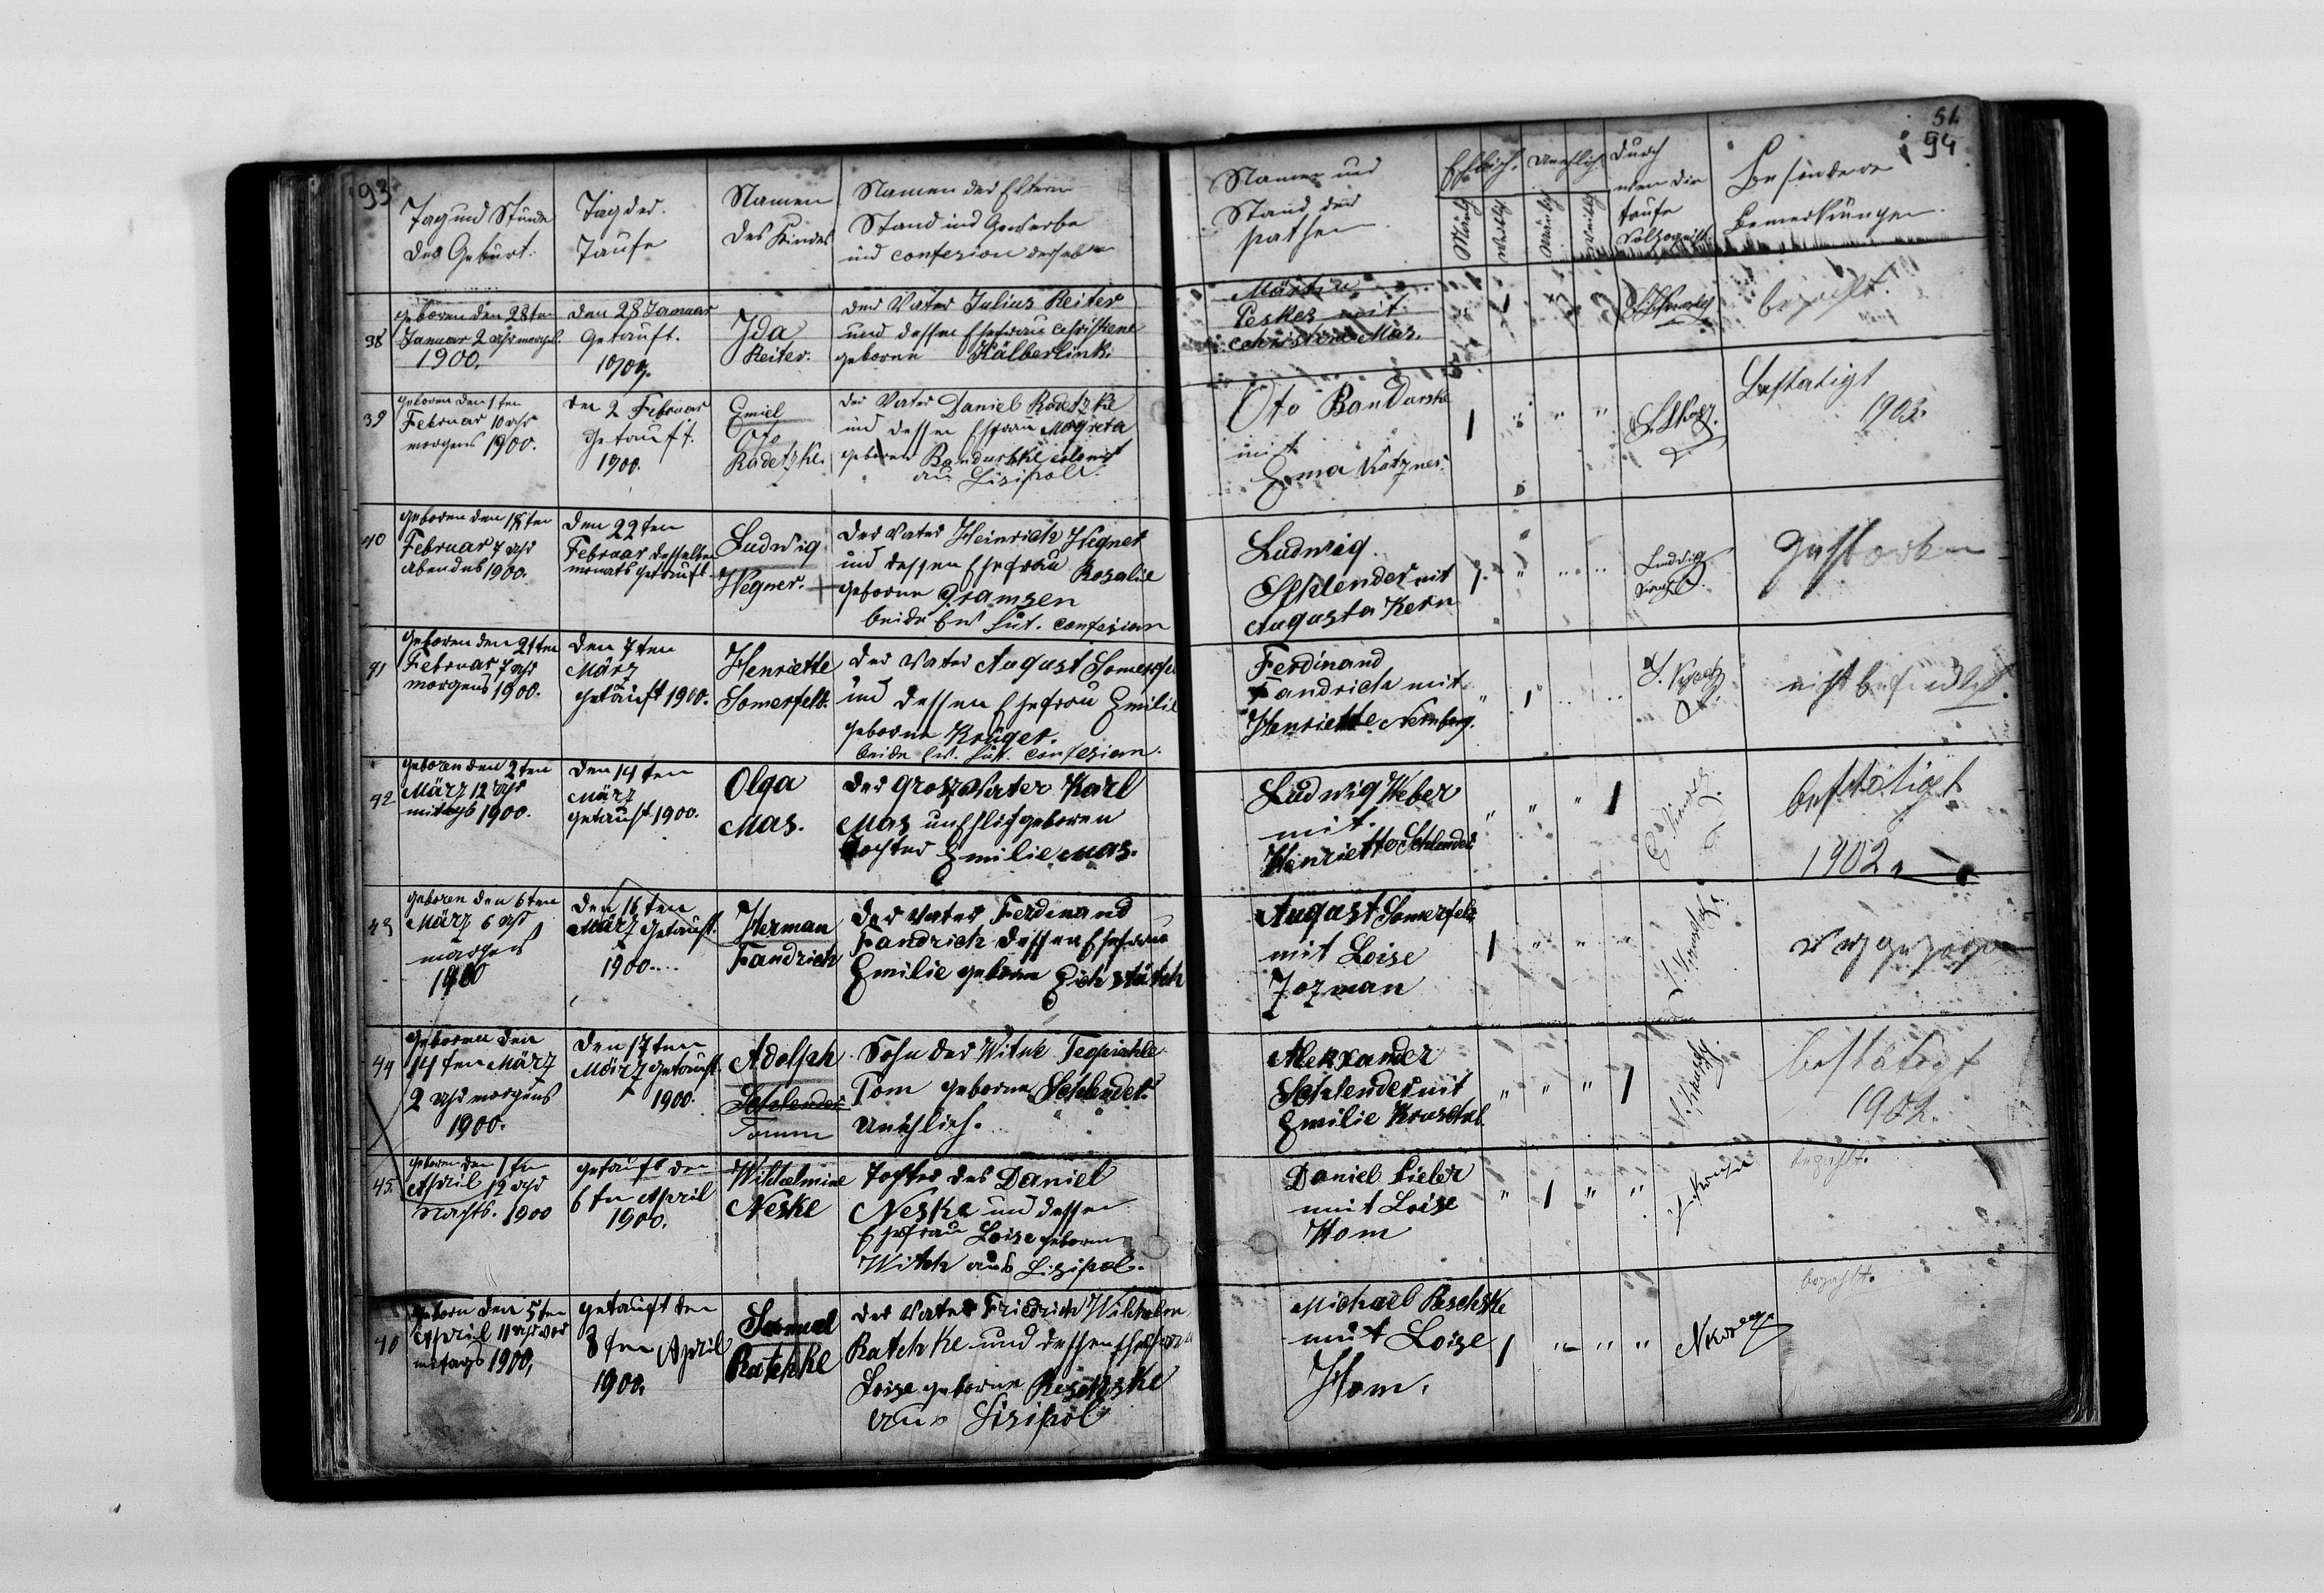 93
Tag und Stunde
des Geburt.
Tag der.
Taufe
Namen
des Kindes
Namen der Eltern
Stand und Gewerbe
und confesion derselben
38
geboren den 28ten
Januar 2 uhr morgs.
1900.
den 28 Januar
Getauft.
1900.
Ida
Reiter.
der Vater Julius Reiter
und dessen Ehefrau Christene
geborne Kälberlink.
39
geboren den 1 ten
Februar 10 uhr
morgens 1900.
den 2 Februar
Getauft.
1900.
Emiel
Oto
Radetzke.
der Vater Daniel Radetzke
und dessen Ehfrau Magreta
geboren Bandurske colonist
aus Lisipole.
40
geboren den 18 ten
Februar 7 uhr
abendes 1900.
den 22 ten
Februar desselben
monats getauft
Ludwig
Wegner.
der Vater Heinrich Wegner
und dessen Ehefrau Rosalie
geborne Gramsen
beide Ew Lut. confesion
41
geboren den 21ten
Februar 7 uhr
morgens 1900.
den 7 ten
März
getauft 1900.
Henriette
Somerfelt.
der Vater August Somerfe
und dessen Ehefrau Emilie
geborne Krüger.
beide Ew. Lut. confesion.
42
geboren den 2 ten
März 12 uhr
mitags 1900.
den 14 ten
März
getauft 1900.
Olga
Mas.
der Grosz Vater Karl
Mas unehlich geboren
Tochter Emilie Mas.
43
geboren den 6 ten
März 6 uhr
morgens
1900
den 16 ten
März getauft.
1900.
Herman
Fandrich
der Vater Ferdinand
Fandrich dessen Ehefrau
Emilie geborne
44
geboren den
14 ten März
2 uhr morgens
1900.
den 17 ten
März getauft.
1900.
Adolph
Schlender
Tomm
Sohn der Witwe
Tom geborne Schlender.
Unehlich.
45.
geboren den 1 ten
April 12 uhr
Nachts. 1900
getauft den
6 ten April
1900.
Wilhelmine
Neske
Tochter des Daniel
Neske und dessen
Ehefrau Loise geboren
Witch aus Lisipol.
geborn den 5 ten
April 11 uhr vor
metags 1900,
getauft den
8 ten April
1900.
Samuel
Ratchke
der Vater Friedrich Wilhelm
Ratchke und dessen Ehefrau
Loise geborne Reschske
aus Lisipol
51.
94
Namen und
Stand der
pathen.
Ehlich.
Unehlich
Mänlig
Weiblig
Mänlig
Weiblig
durch
wen die
taufe
Besondere
Bemerkungen.
Martin
Peskes mit
Christine Mas.
bezahlt.
Oto Bandurske
mit
Ema Katzner.
1 " " "
Bestatigt
1903.
Ludwig
Schlender mit
Augusta Kern
1. " " "
Ludwig
Gestorben
Ferdinand
Fandrich mit
Henriette Nernberg.
" 1 " "
Ludwig Weber
mit
Henriette Schlender
" " " 1
bestätigt
1902.
August Somerfelt
mit Loise
Jozman
1 " " "
Alexxander
Schlender mit
Emilie Kruschel
" " " 1
bestätigt
1902.
Daniel Lieber
mit Loise
Hom
" 1 " "
bezahlt.
Michael Reschske
mit Loise
Hom.
1 " " "
bezahlt.